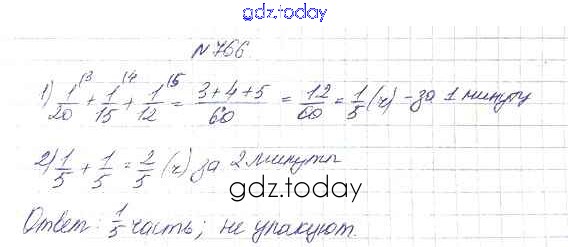 gdz.today
N766
1) 1/20 ¹³ + 1/15 ¹⁴ + 1/12 ¹⁵ = (3+4+5)/60 = 12/60 = 1/5 (ч) - за 1 минуту
2) 1/5 + 1/5 = 2/5 (ч) за 2 минуты
gdz.today
Ответ: 1/5 часть; не упакуют.